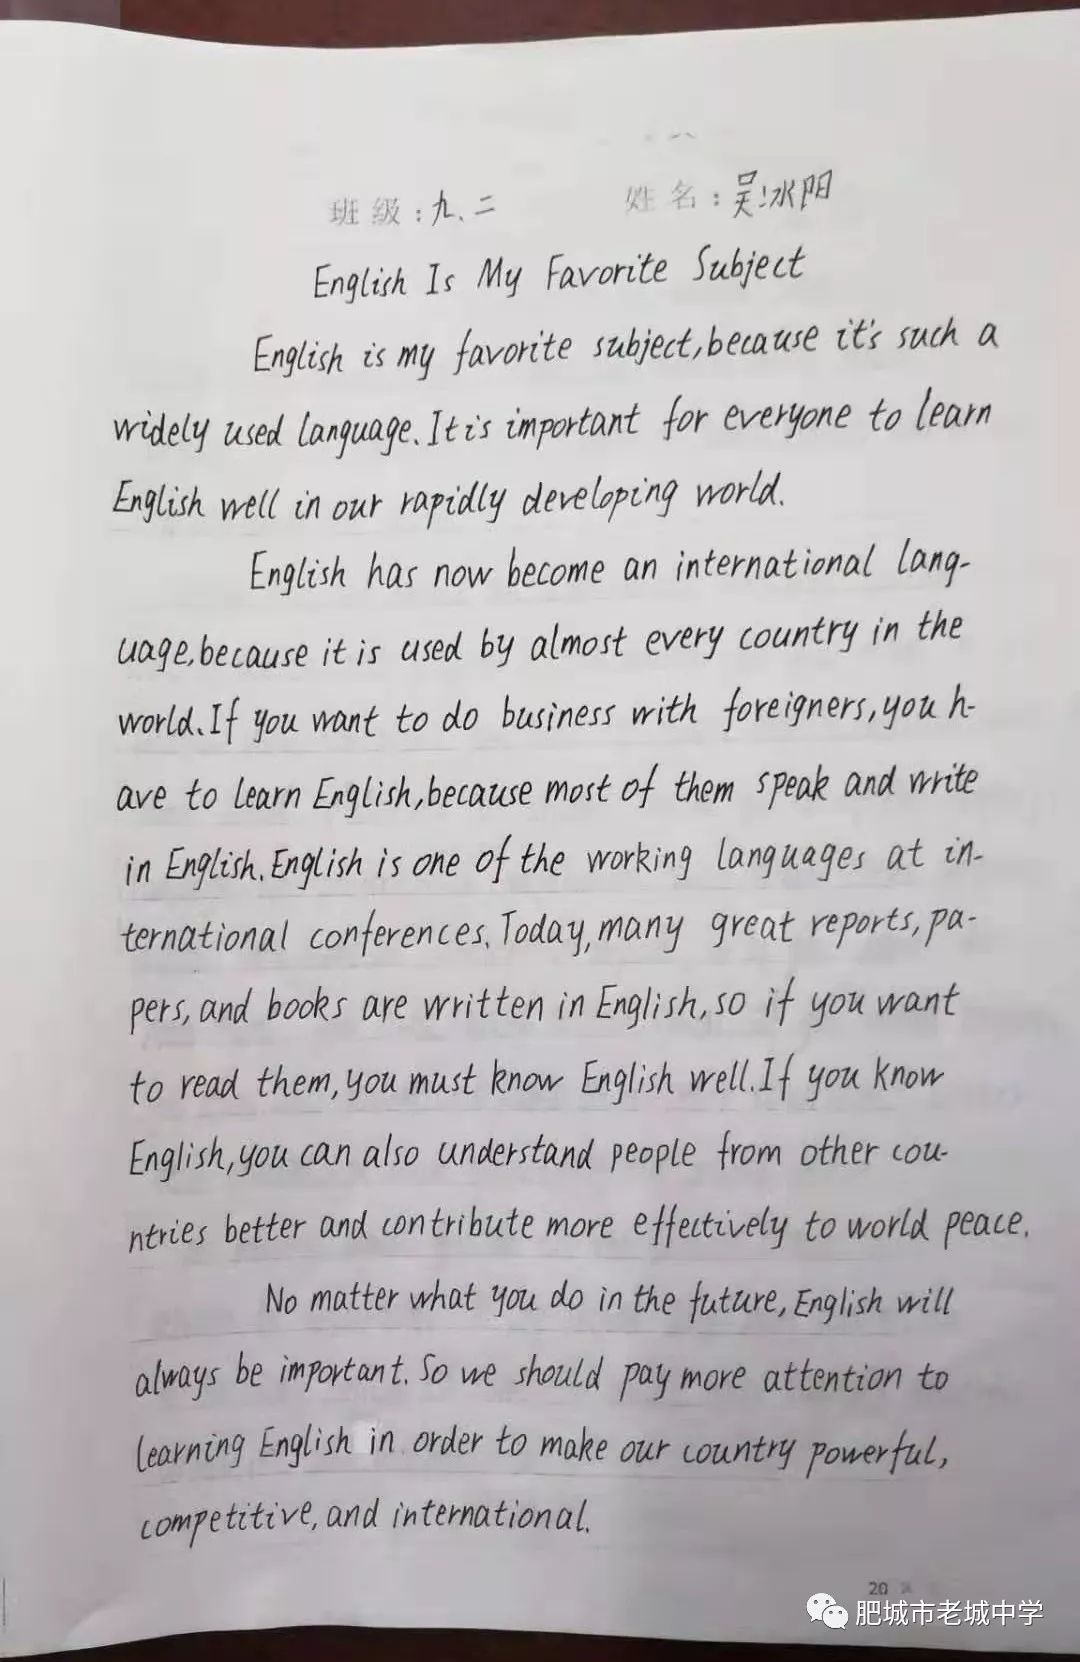 班级:九、二 姓名:吴冰阳
English Is My Favorite Subject
English is my favorite subject,because it's such a
widely used language.It is important for everyone to learn
English well in our rapidly developing world.
English has now become an international lang-
uage,because it is used by almost every country in the
world.If you want to do business with foreigners,you h-
ave to learn English,because most of them speak and write
in English.English is one of the working languages at in-
ternational conferences.Today,many great reports,pa-
pers,and books are written in English,so if you want
to read them,you must know English well.If you know
English,you can also understand people from other cou-
ntries better and contribute more effectively to world peace.
No matter what you do in the future,English will
always be important.So we should pay more attention to
learning English in order to make our country powerful,
competitive,and international.
20
肥城市老城中学